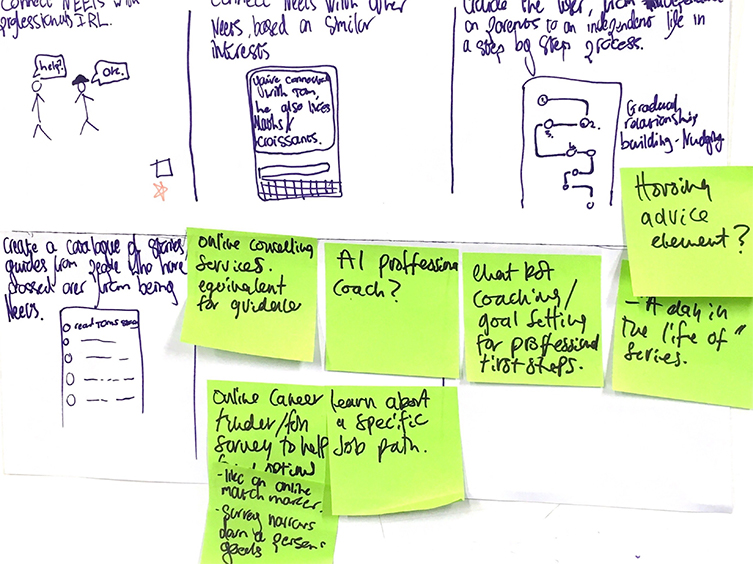 Connect NEETs with
professionals IRL.
help?
Ok.
Connect Neets with other
Neets, based on similar
interests
you're connected
with Tom,
he also likes
Maths/
croissants.
Guide the user, from
on parents to an independent life in
a step by step process.
1.
2.
3.
Gradual
relationship
building - Nudging
Housing
advice
element?
Create a catalogue of stories,
guides from people who have
crossed over from being
Neets.
read Toms
online counselling
services.
equivalent
for guidance
AI proffessional
coach?
chat bot
coaching/
goal setting
for proffessional
first steps.
- "A day in
the life of"
series.
Online Career
tinder/fun
survey to help
- like an online
match maker.
- survey narrows
down a persons
goals
Learn about
a specific
Job path.